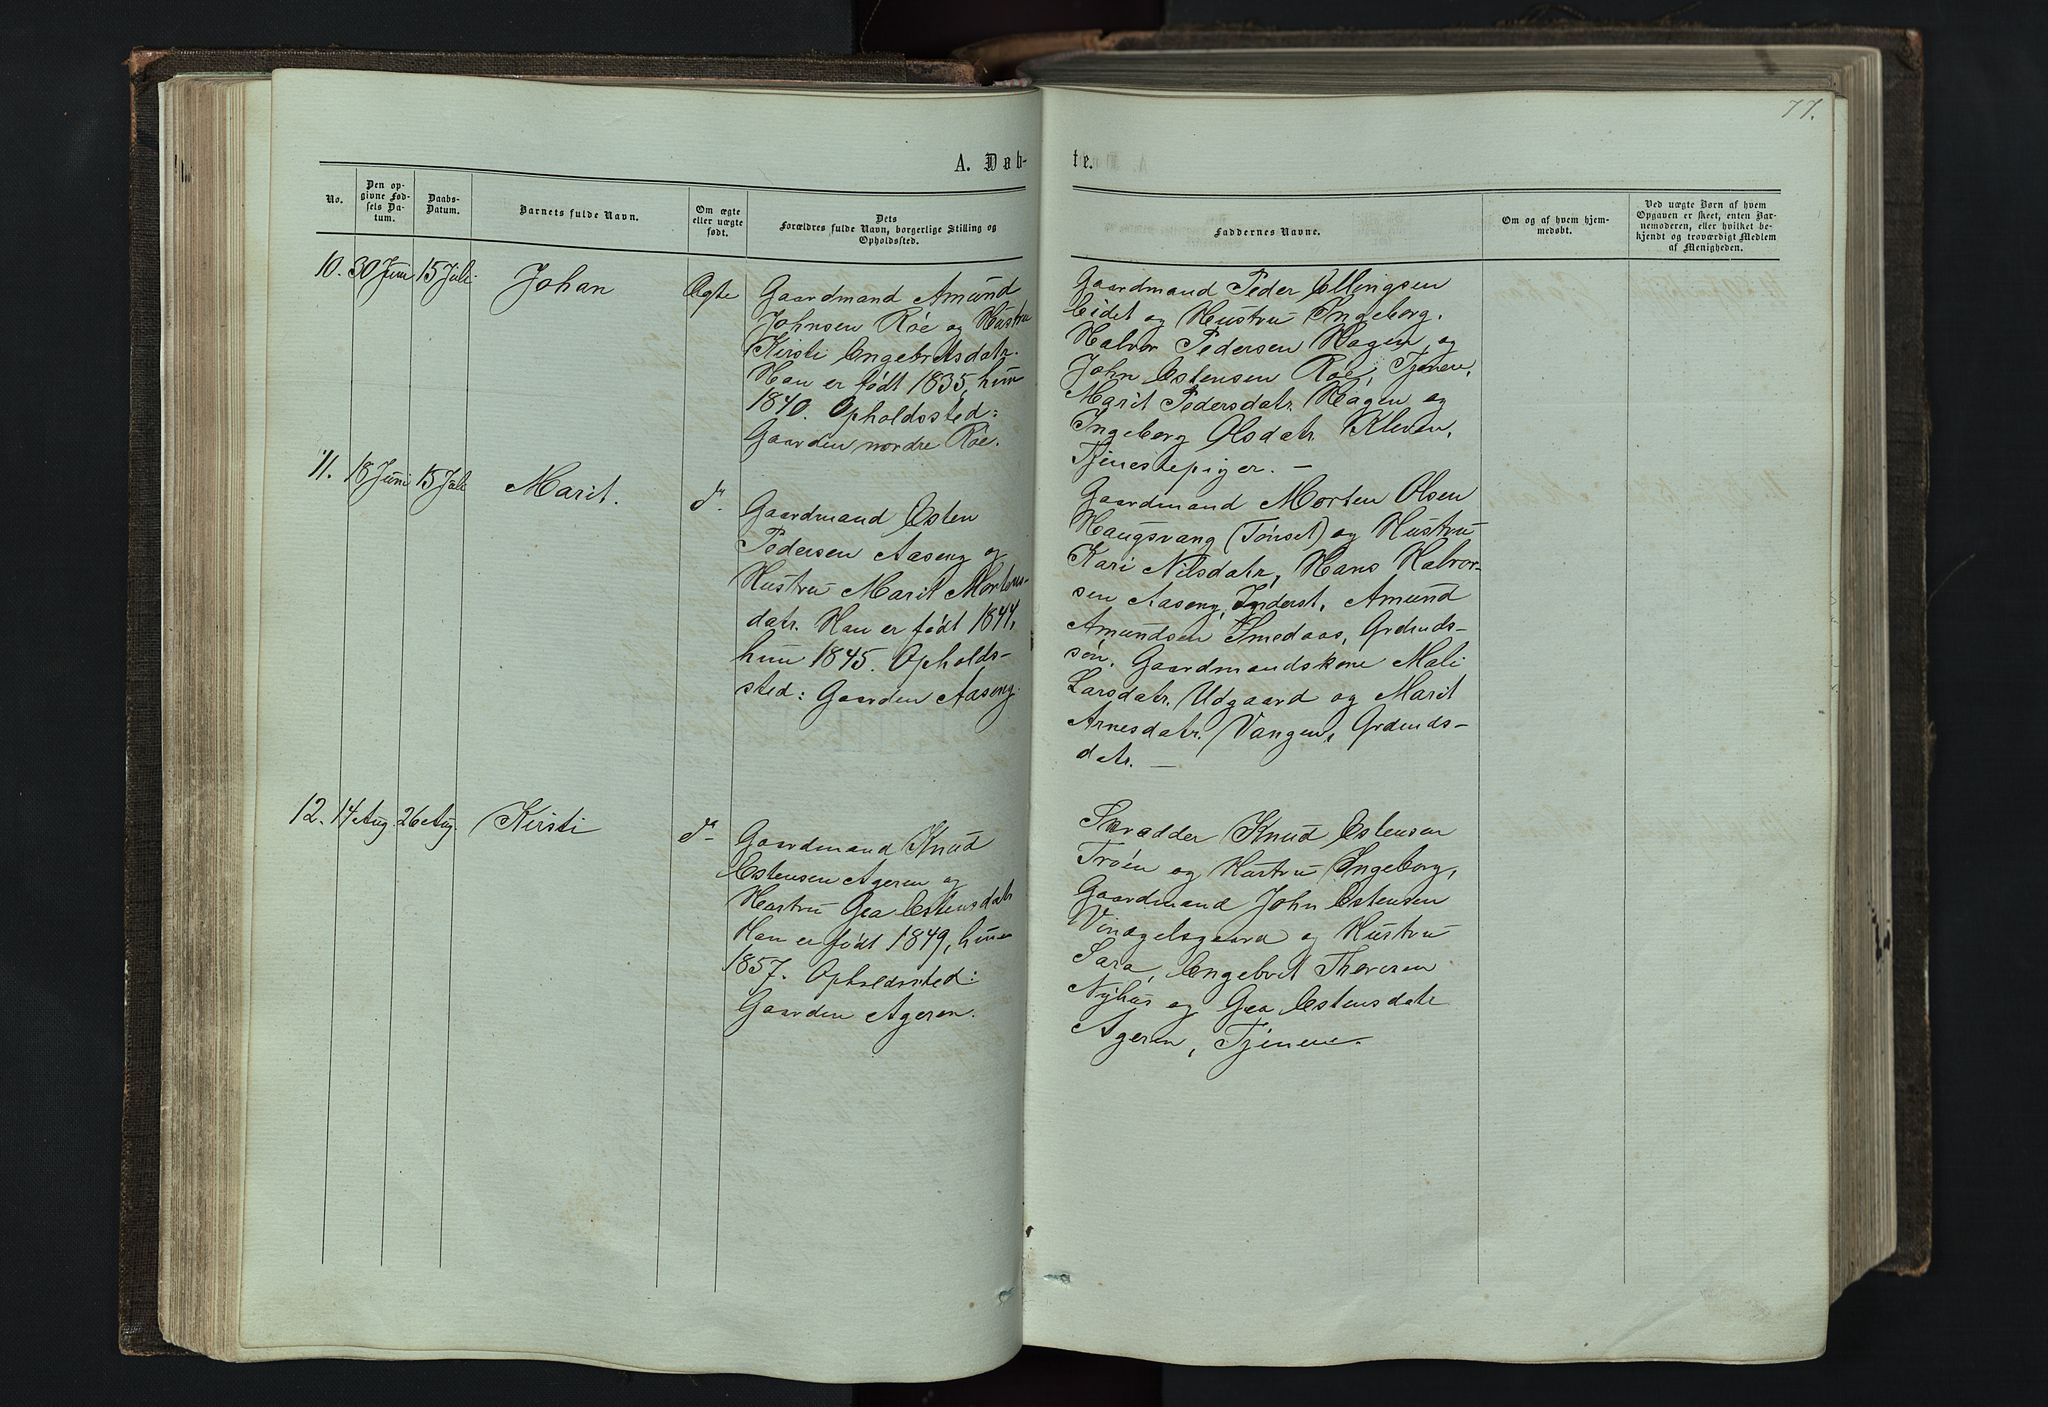 77.
A. Døb-
te.
No.
Den op-
givne Fød-
sels Da-
tum.
Daabs-
Datum.
Barnets fulde Navn.
Om ægte
eller uægte
født.
Dets
Forældres fulde Navn, borgerlige Stilling og
Opholdssted.
Faddernes Navne.
Om og af hvem hjem-
medøbt.
Ved uægte Børn af hvem
Opgaven er skeet, enten Bar-
nemoderen, eller hvilket be-
kjendt og troværdigt Medlem
af Menigheden.
10. 30 Juni 15 Juli Johan Ægte
Gaardmand Amund
Johnsen Röe og Hustru
Kirsti Engebretsdatr.
Han er född 1835, hun
1840. Opholdssted:
Gaarden nordre Röe.
Gaardmand Peder Ellingsen
Eidet og Hustru Ingeborg.
Halvor Pedersen Hagen og
John Estensen Röe, Tjenere,
Marit Pedersdatr. Hagen og
Ingeborg Olsdatr. Kleven,
Tjenestepiger. —
11. 18 Juni 15 Juli Marit. do.
Gaardmand Esten
Pedersen Aaseng og
Hustru Marit Mortens-
datr. Han er født 1844,
hun 1845. Opholds-
sted: Gaarden Aaseng.
Gaardmand Morten Olsen
Haugsvang (Tönset) og Hustru
Kari Nilsdatr, Hans Halvor-
sen Aaseng, Inderst, Amund
Amundsen Smedaas, Grdmds-
søn. Gaardmandskone Mali
Larsdatr. Udgaard og Marit
Arnesdatr. Vangen, Grdmds-
datr. —
12. 14 Aug. 26 Aug. Kirsti do
Gaardmand Knud
Estensen Ageren og
Hustru Gea Estensdatr
Han er født 1849, hun
1857. Opholdssted:
Gaarden Ageren.
Skrædder Knud Estensen
Tröen og Hustru Ingeborg,
Gaardmand John Estensen
Vingelsgaard og Hustru
Sara, Engebret Thoresen
Nyhus og Gea Estensdatr
Ageren, Tjenere.